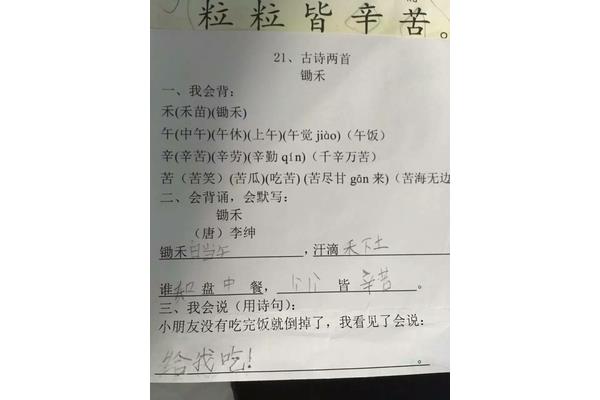 粒粒皆辛苦。
21、古诗两首
锄禾
一、我会背：
禾(禾苗)(锄禾)
午(中午)(午休)(上午)(午觉 jiào)（午饭）
辛(辛苦)(辛劳)(辛勤 qín)（千辛万苦）
苦（苦笑）(苦瓜)(吃苦) (苦尽甘 gān 来)（苦海无边
二、会背诵，会默写：
锄禾
（唐）李绅
锄禾白当午，汗滴禾下土
谁知盘中餐，个个皆辛苦。
三、我会说（用诗句）：
小朋友没有吃完饭就倒掉了，我看见了会说：
给我吃！。